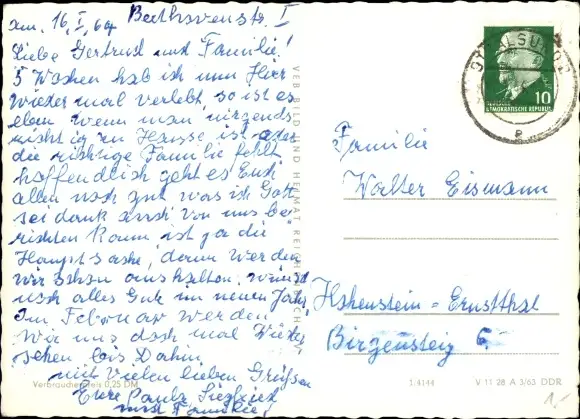 am. 16. I. 64 Beethovenstr. I
Liebe Gertrud und Familie!
5 Wochen hab ich nun Hier
wieder mal verlebt, so ist es
eben wenn man nirgends
richtig zu Hause ist oder
die richtige Familie fehlt
hoffendlich geht es Euch
allen noch gut was ich Gott
sei dank auch von uns be
richten kann, ist ja die
Hauptsache, dann werden
wir schon aushalten, wünsch
noch alles Gute im neuen Jahr,
Im Februar werden
wir uns doch mal Wieder
sehen bis Dahin,
mit vielen lieben Grüßen
Eure Paula Siegfried
und Familie
Verbraucherpreis 0,25 DM
VEB BILD UND HEIMAT REICH
10
DEMOKRATISCHE REPUBLIK
Familie
Walter Eismann
Hohenstein = Ernstthal
Birgensteig 6
1/4144 V 11 28 A 3/63 DDR